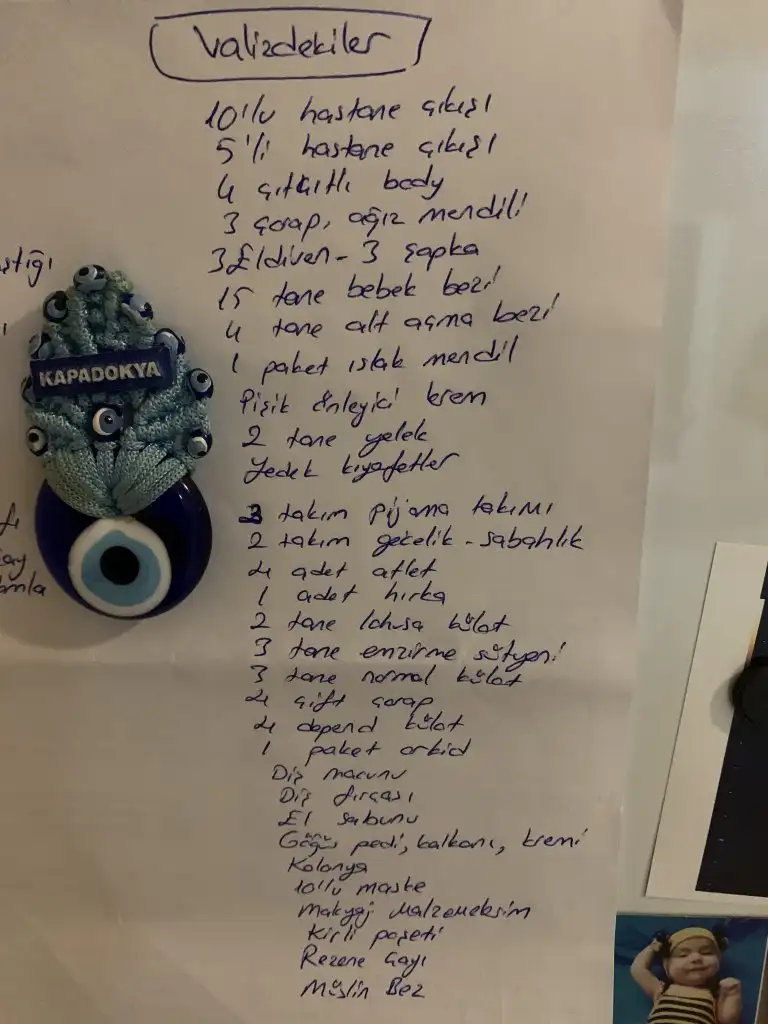 Valizdekiler
10'lu hastane çıkışı
5'li hastane çıkışı
4 çıtçıtlı body
3 çorap, ağız mendili
3 Eldiven - 3 şapka
15 tane bebek bezi
4 tane alt açma bezi
1 paket ıslak mendil
Pişik önleyici krem
2 tane yelek
Yedek kıyafetler
3 takım pijama takımı
2 takım gecelik - sabahlık
4 adet atlet
1 adet hırka
2 tane lohusa külot
3 tane emzirme sütyeni
3 tane normal külot
4 çift çorap
4 depend külot
1 paket orkid
Diş macunu
Diş fırçası
El sabunu
Göğüs pedi, balkanı, kremi
Kolonya
10'lu maske
Makyaj Malzemeksim
Kirli poşeti
Rezene Çayı
Müslin Bez
KAPADOKYA